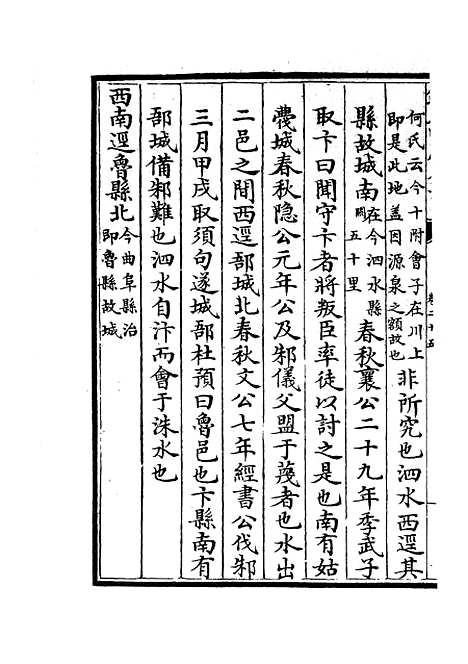 何氏云今十附會子在川上
即是此地盖因源泉之額故也
非所究也泗水西逕其
縣故城南
在今泗水縣
東五十里
春秋襄公二十九年季武子
取卞曰聞守卞者將叛臣率徒以討之是也南有姑
蔑城春秋隱公元年公及邾儀父盟于蔑者也水出
二邑之間西逕郚城北春秋文公七年經書公伐邾
三月甲戌取須句遂城郚杜預曰魯邑也卞縣南有
郚城備邾難也泗水自卞而會于洙水也
西南逕魯縣北
今曲阜縣治
即魯縣故城
卷二十五